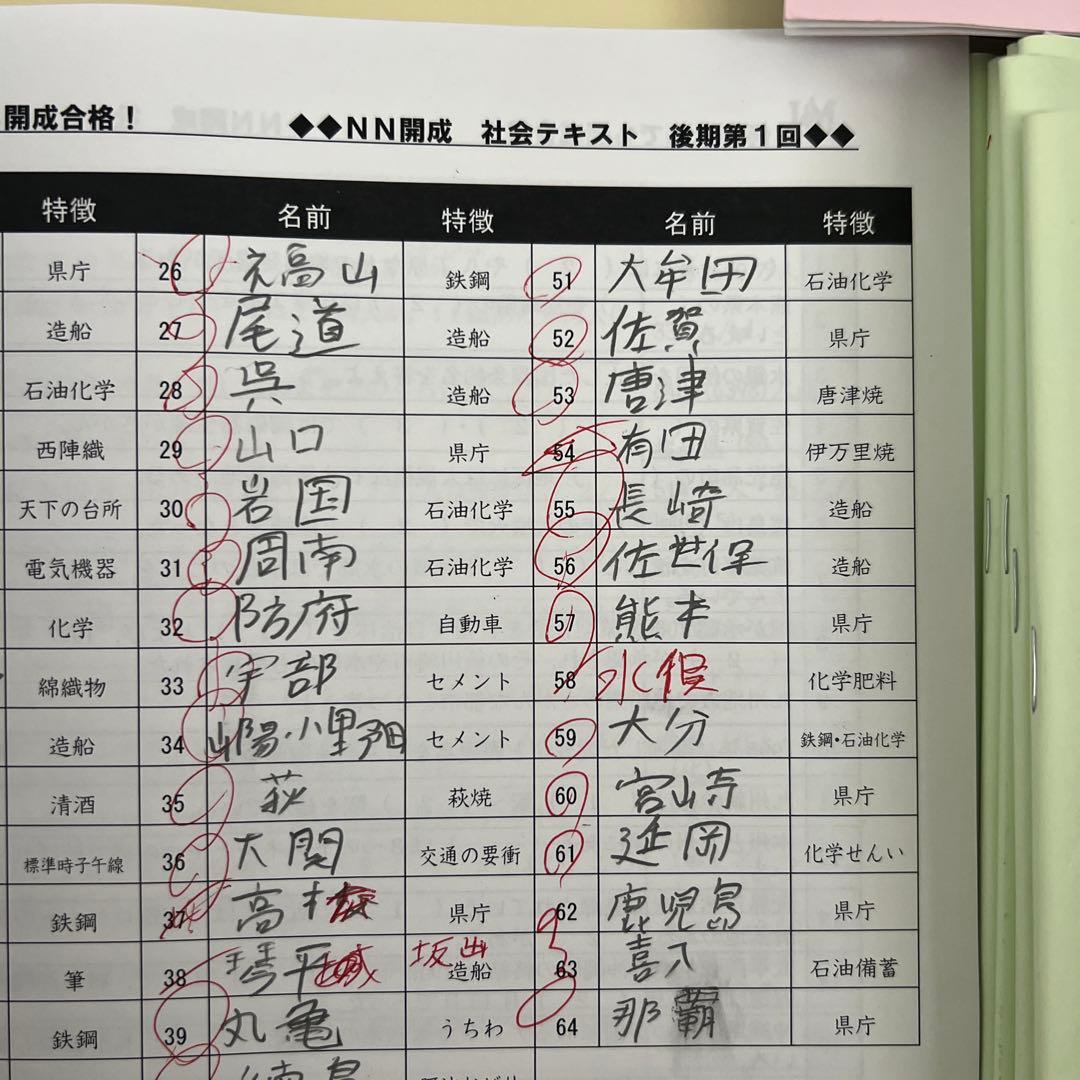 開成合格！
◆◆ＮＮ開成　社会テキスト　後期第１回◆◆
特徴 名前 特徴 名前 特徴
県庁 26 福山 鉄鋼 51 大牟田 石油化学
造船 27 尾道 造船 52 佐賀 県庁
石油化学 28 呉 造船 53 唐津 唐津焼
西陣織 29 山口 県庁 54 有田 伊万里焼
天下の台所 30 岩国 石油化学 55 長崎 造船
電気機器 31 周南 石油化学 56 佐世保 造船
化学 32 防府 自動車 57 熊本 県庁
綿織物 33 宇部 セメント 58 水俣 化学肥料
造船 34 山陽・小野田 セメント 59 大分 鉄鋼・石油化学
清酒 35 萩 萩焼 60 宮崎 県庁
標準時子午線 36 大関 交通の要衝 61 延岡 化学せんい
鉄鋼 37 高松 県庁 62 鹿児島 県庁
筆 38 琴平 坂出 造船 63 喜入 石油備蓄
鉄鋼 39 丸亀 うちわ 64 那覇 県庁